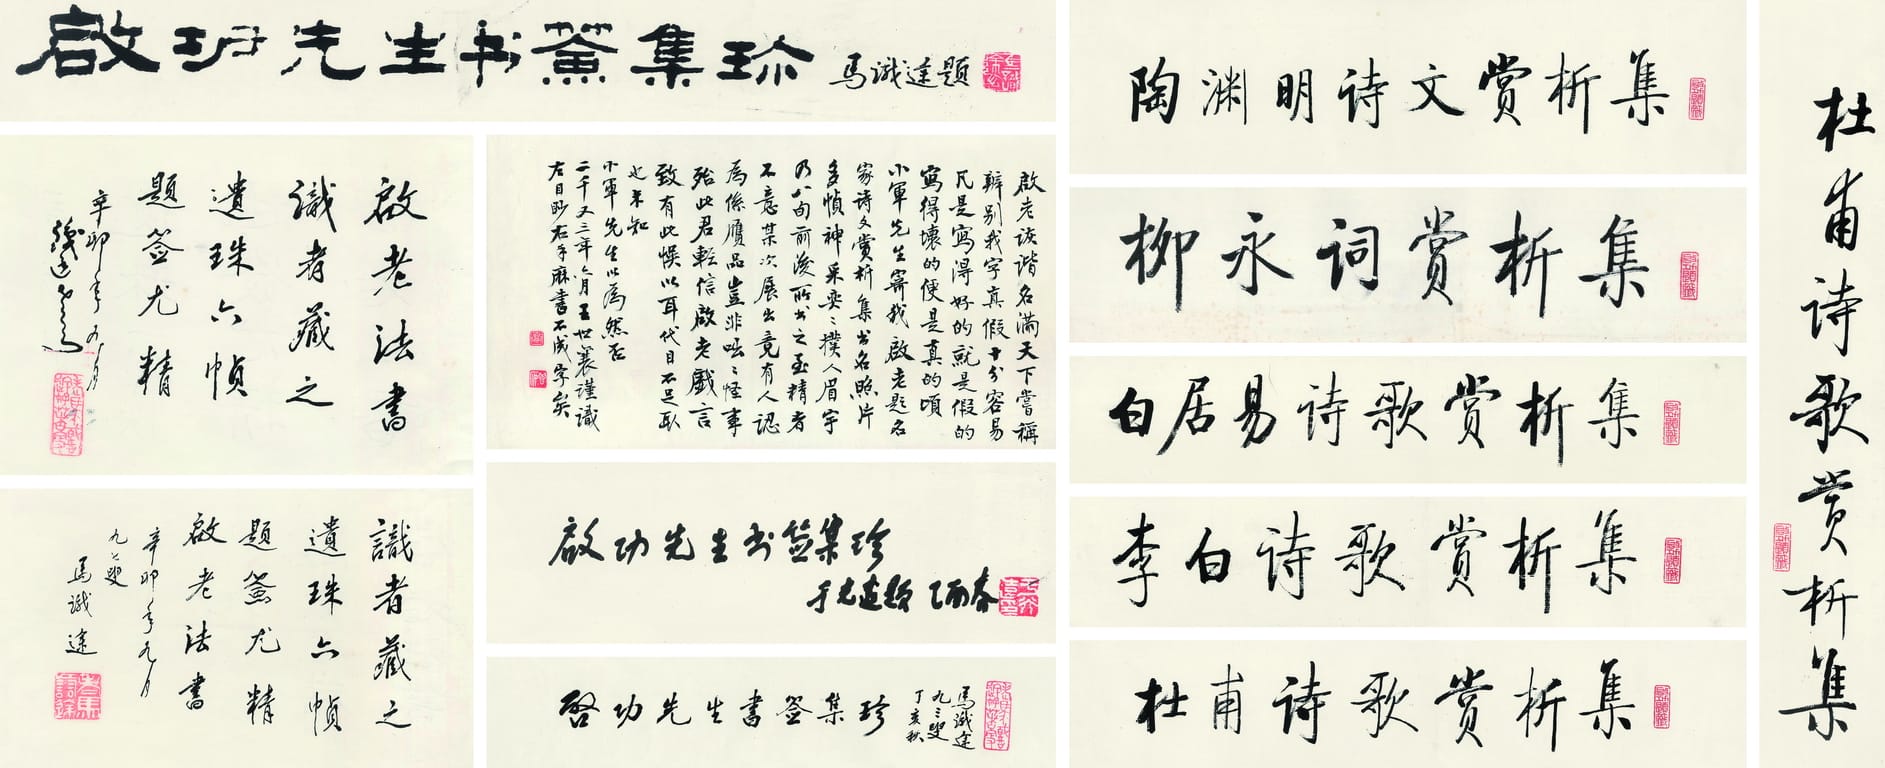 啟功先生书簽集珍
馬識途題
啟老法書
識者藏之
遺珠六幀
題签尤精
辛卯年九月
識者藏之
遺珠六幀
題簽尤精
啟老法書
辛卯年九月
九七叟
馬識途
啟老诙谐名滿天下嘗稱
辨别我字真假十分容易
凡是寫得好的就是假的
寫得壞的便是真的頃
小軍先生寄我啟老題名
家诗文赏析集书名照片
多幀神采奕〻撲人眉宇
乃八旬前後所书之至精者
不意某次展出竟有人認
爲係贋品豈非咄〻怪事
殆此君輕信啟老戲言
致有此悮以耳代目不足取
也未知
小軍先生以爲然否
二千又三年六月王世襄謹識
左目眇右手麻書不成字矣
啟功先生书签集珍
于光遠題 乙酉春
啓功先生書签集珍
馬識途
九三叟
丁亥秋
陶渊明诗文赏析集
柳永词赏析集
白居易诗歌赏析集
李白诗歌赏析集
杜甫诗歌赏析集
杜甫诗歌赏析集